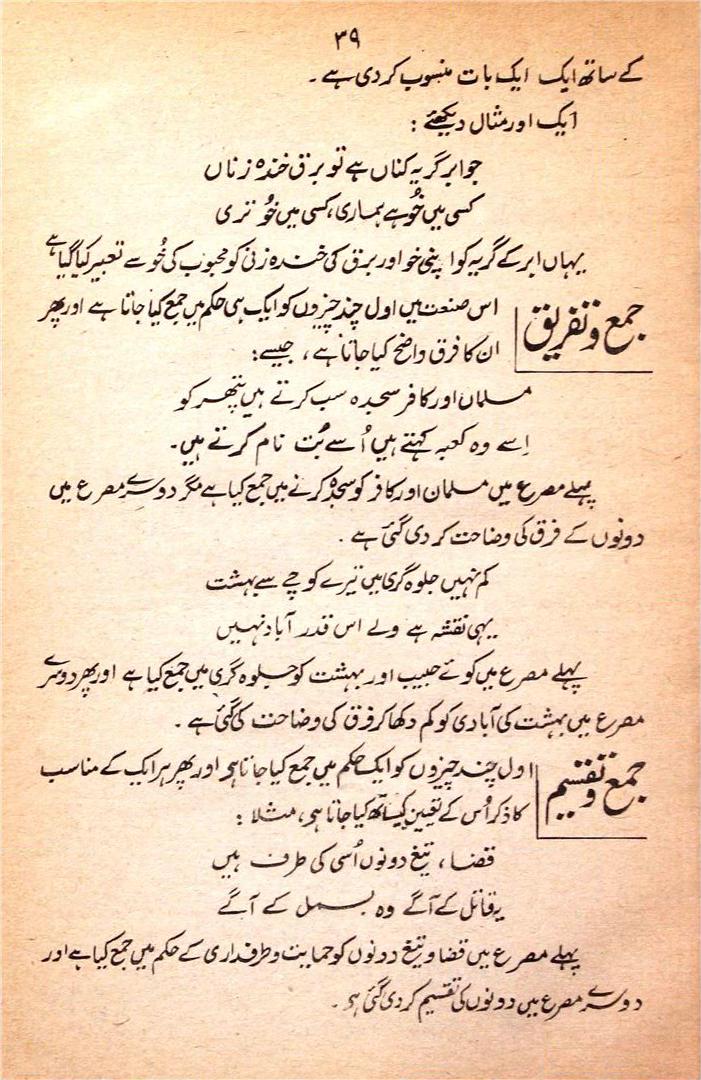 ۳۹
کے ساتھ ایک ایک بات منسوب کر دی ہے ۔
ایک اور مثال دیکھئے :
جو ابر گریہ کناں ہے تو برق خندہ زناں
کسی میں خُو ہے ہماری، کسی میں خُو تری
یہاں ابر کے گریہ کو اپنی خو اور برق کی خندہ زنی کو محبوب کی خُو سے تعبیر کیا گیا ہے
جمع و تفریق
اس صنعت میں اول چند چیزوں کو ایک ہی حکم میں جمع کیا جاتا ہے اور پھر
ان کا فرق واضح کیا جاتا ہے ، جیسے :
مسلماں اور کافر سجدہ سب کرتے ہیں پتھر کو
اِسے وہ کعبہ کہتے ہیں اُسے بُت نام کرتے ہیں۔
پہلے مصرع میں مسلمان اور کافر کو سجدہ کرنے میں جمع کیا ہے مگر دوسرے مصرع میں
دونوں کے فرق کی وضاحت کر دی گئی ہے ۔
کم نہیں جلوہ گری میں تیرے کوچے سے بہشت
یہی نقشہ ہے ولے اس قدر آباد نہیں
پہلے مصرع میں کوئے حبیب اور بہشت کو جلوہ گری میں جمع کیا ہے اور پھر دوسرے
مصرع میں بہشت کی آبادی کو کم دکھا کر فرق کی وضاحت کی گئی ہے ۔
جمع و تقسیم
اول چند چیزوں کو ایک حکم میں جمع کیا جاتا ہے اور پھر ہر ایک کے مناسب
کا ذکر اُس کے تعین کیساتھ کیا جاتا ہے ، مثلاً :
قضا ، تیغ دونوں اُسی کی طرف ہیں
یہ قاتل کے آگے وہ بسمل کے آگے
پہلے مصرع میں قضا و تیغ دونوں کو حمایت و طرفداری کے حکم میں جمع کیا ہے اور
دوسرے مصرع میں دونوں کی تقسیم کر دی گئی ہے ۔